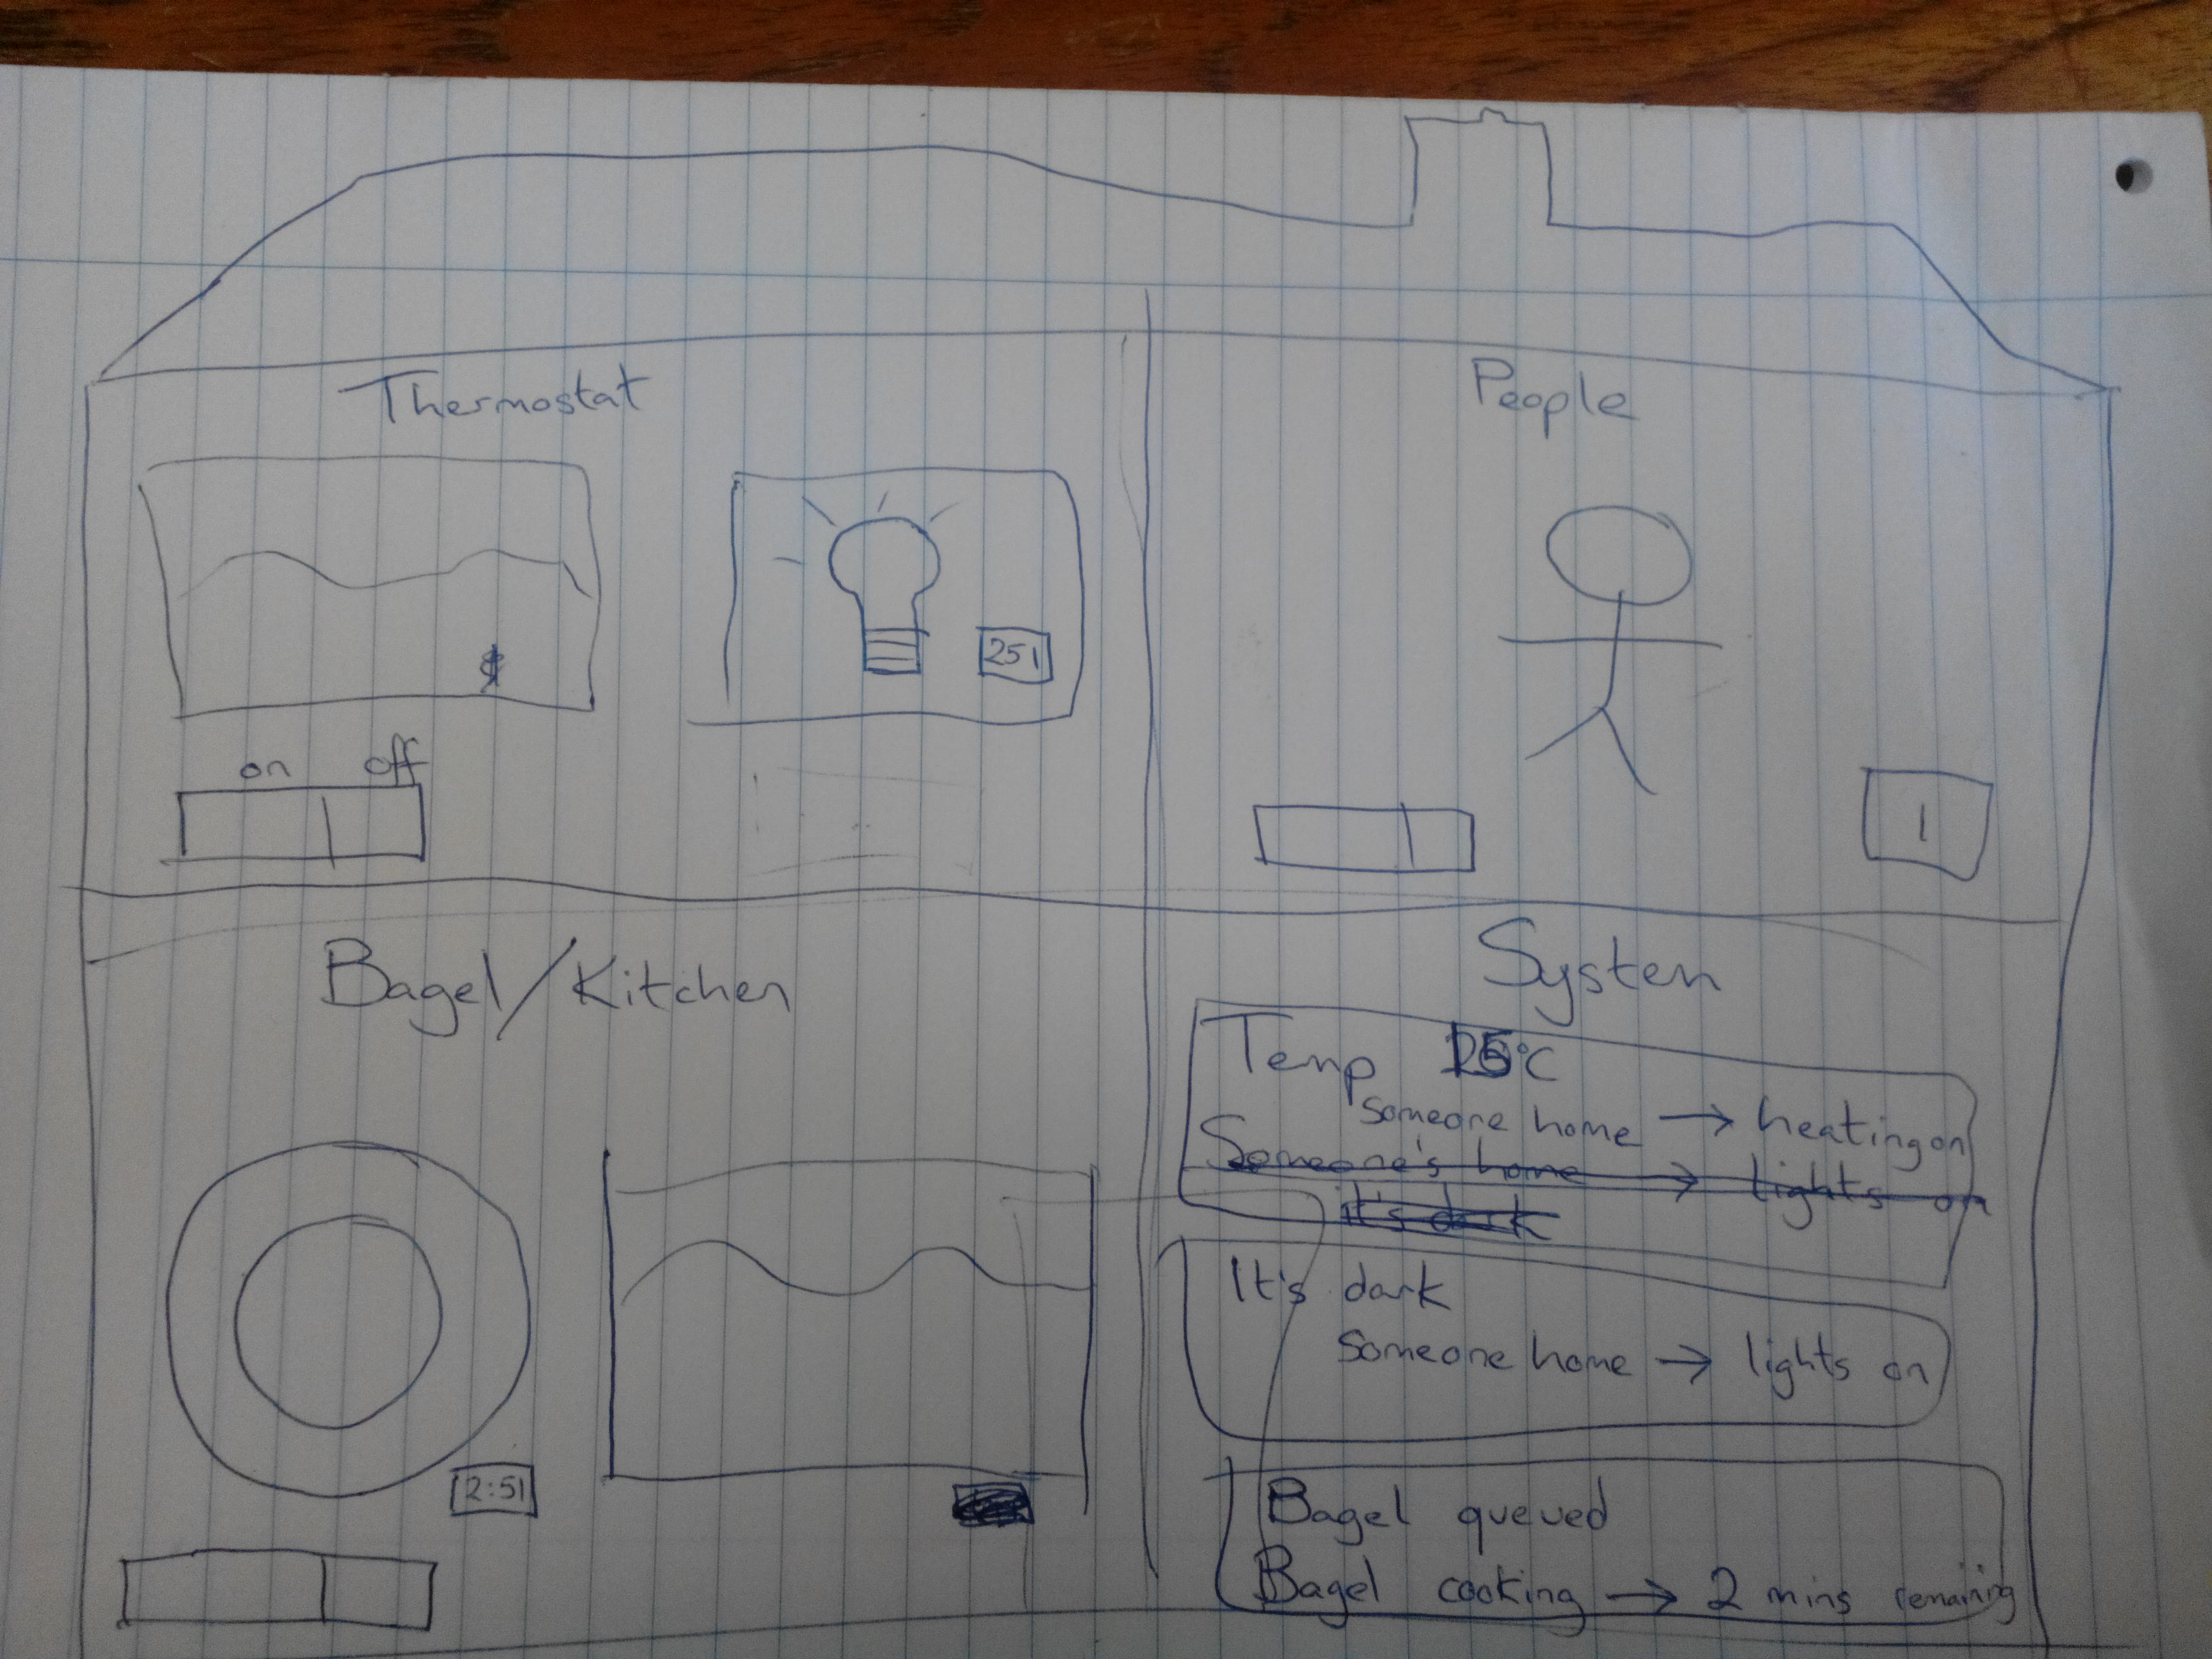 Thermostat
251
on off
People
1
Bagel/Kitchen
2:51
System
Temp 15°C
someone home → heating on
Someone's home → lights on
it's dark
It's dark
someone home → lights on
Bagel queued
Bagel cooking → 2 mins remaining